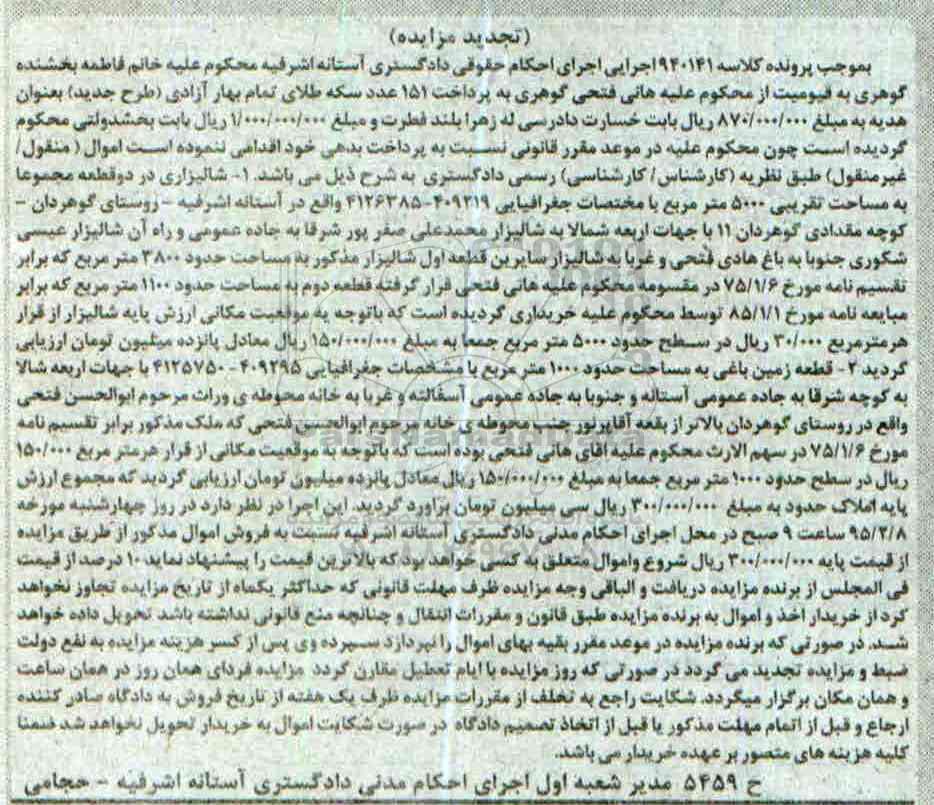 (تجدید مزایده)
بموجب پرونده کلاسه ۹۴۰۱۴۱ اجرایی اجرای احکام حقوقی دادگستری آستانه اشرفیه محکوم علیه خانم فاطمه بخشنده
گوهری به قیومیت از محکوم علیه هانی فتحی گوهری به پرداخت ۱۵۱ عدد سکه طلای تمام بهار آزادی (طرح جدید) بعنوان
هدیه به مبلغ ۸۷۰/۰۰۰/۰۰۰ ریال بابت خسارت دادرسی له زهرا بلند فطرت و مبلغ ۱/۰۰۰/۰۰۰/۰۰۰ ریال بابت بخشدولتی محکوم
گردیده است چون محکوم علیه در موعد مقرر قانونی نسبت به پرداخت بدهی خود اقدامی ننموده است اموال (منقول/
غیرمنقول) طبق نظریه (کارشناس/کارشناسی) رسمی دادگستری به شرح ذیل می باشد. ۱- شالیزاری در دوقطعه مجموعا
به مساحت تقریبی ۵۰۰۰ متر مربع با مختصات جغرافیایی ۴۰۹۳۱۹-۴۱۲۶۳۸۵ واقع در آستانه اشرفیه - روستای گوهردان -
کوچه مقدادی گوهردان ۱۱ با جهات اربعه شمالا به شالیزار محمدعلی صفر پور شرقا به جاده عمومی و راه آن شالیزار عیسی
شکوری جنوبا به باغ هادی فتحی و غربا به شالیزار سایرین قطعه اول شالیزار مذکور به مساحت حدود ۳۸۰۰ متر مربع که برابر
تقسیم نامه مورخ ۷۵/۱/۶ در مقسومه محکوم علیه هانی فتحی قرار گرفته قطعه دوم به مساحت حدود ۱۱۰۰ متر مربع که برابر
مبایعه نامه مورخ ۸۵/۱/۱ توسط محکوم علیه خریداری گردیده است که باتوجه به موقعیت مکانی ارزش پایه شالیزار از قرار
هرمترمربع ۳۰/۰۰۰ ریال در سطح حدود ۵۰۰۰ متر مربع جمعا به مبلغ ۱۵۰/۰۰۰/۰۰۰ ریال معادل پانزده میلیون تومان ارزیابی
گردید ۲- قطعه زمین باغی به مساحت حدود ۱۰۰۰ متر مربع با مشخصات جغرافیایی ۴۰۹۲۹۵-۴۱۲۵۷۵۰ با جهات اربعه شالا
به کوچه شرقا به جاده عمومی آستانه و جنوبا به جاده عمومی آسفالته و غربا به خانه محوطه ی وراث مرحوم ابوالحسن فتحی
واقع در روستای گوهردان بالاتر از بقعه آقاپرنور جنب محوطه ی خانه مرحوم ابوالحسن فتحی که ملک مذکور برابر تقسیم نامه
مورخ ۷۵/۱/۶ در سهم الارث محکوم علیه اقای هانی فتحی بوده است که باتوجه به موقعیت مکانی از قرار هرمتر مربع ۱۵۰/۰۰۰
ریال در سطح حدود ۱۰۰۰ متر مربع جمعا به مبلغ ۱۵۰/۰۰۰/۰۰۰ ریال معادل پانزده میلیون تومان ارزیابی گردید که مجموع ارزش
پایه املاک حدود به مبلغ ۳۰۰/۰۰۰/۰۰۰ ریال سی میلیون تومان برآورد گردید. این اجرا در نظر دارد در روز چهارشنبه مورخه
۹۵/۲/۸ ساعت ۹ صبح در محل اجرای احکام مدنی دادگستری آستانه اشرفیه نسبت به فروش اموال مذکور از طریق مزایده
از قیمت پایه ۳۰۰/۰۰۰/۰۰۰ ریال شروع واموال متعلق به کسی خواهد بود که بالاترین قیمت را پیشنهاد نماید ۱۰ درصد از قیمت
فی المجلس از برنده مزایده دریافت و الباقی وجه مزایده ظرف مهلت قانونی که حداکثر یکماه از تاریخ مزایده تجاوز نخواهد
کرد از خریدار اخذ و اموال به برنده مزایده طبق قانون و مقررات انتقال و چنانچه منع قانونی نداشته باشد تحویل داده خواهد
شد. در صورتی که برنده مزایده در موعد مقرر بقیه بهای اموال را نپردازد سپرده وی پس از کسر هزینه مزایده به نفع دولت
ضبط و مزایده تجدید می گردد در صورتی که روز مزایده با ایام تعطیل مقارن گردد مزایده فردای همان روز در همان ساعت
و همان مکان برگزار میگردد. شکایت راجع به تخلف از مقررات مزایده ظرف یک هفته از تاریخ فروش به دادگاه صادر کننده
ارجاع و قبل از اتمام مهلت مذکور یا قبل از اتخاذ تصمیم دادگاه در صورت شکایت اموال به خریدار تحویل نخواهد شد ضمنا
کلیه هزینه های متصور بر عهده خریدار می باشد.
ح ۵۴۵۹ مدیر شعبه اول اجرای احکام مدنی دادگستری آستانه اشرفیه - حجامی